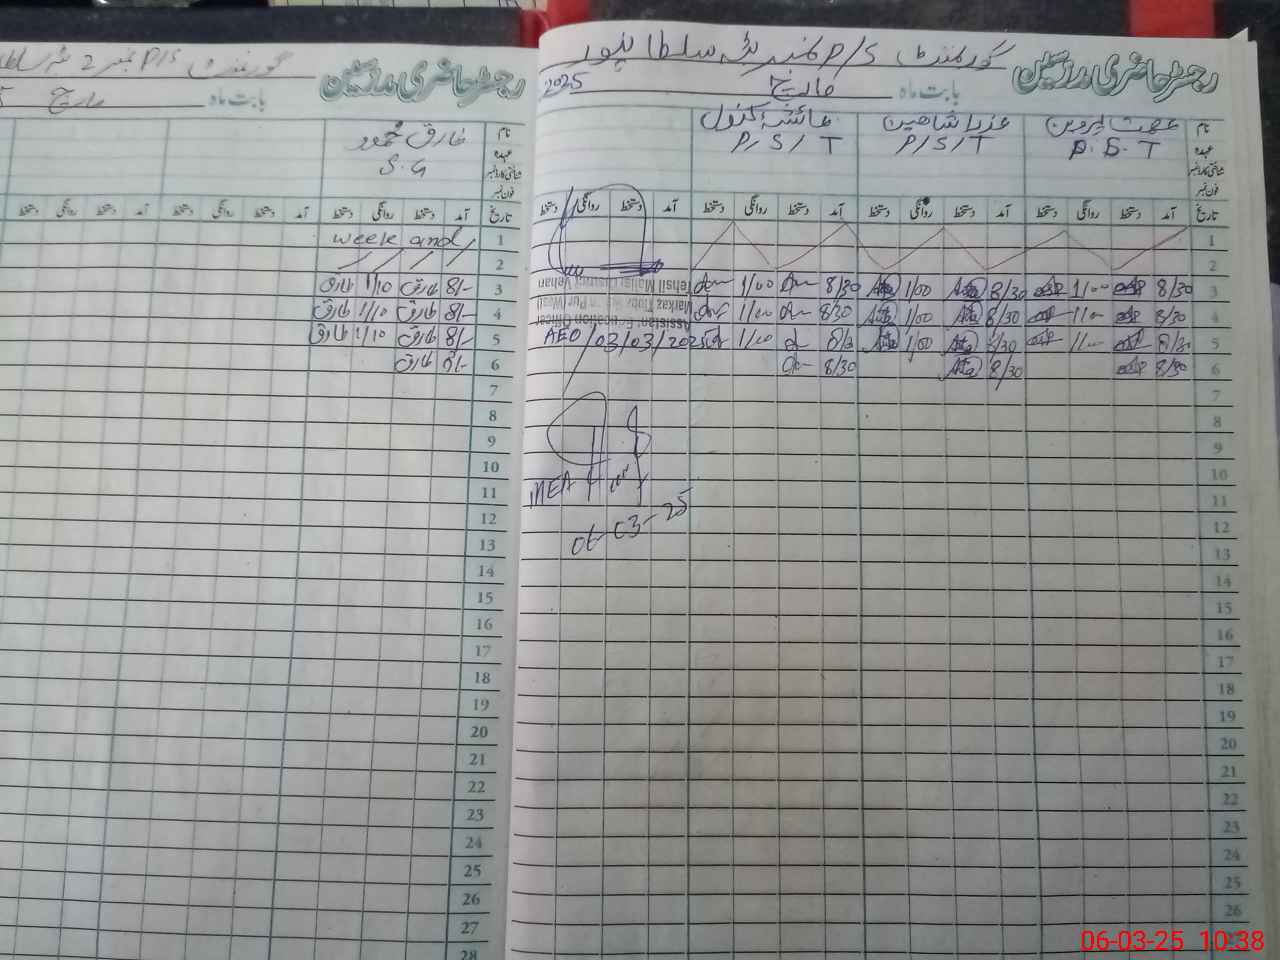 رجسٹر حاضری مدرسین
گورنمنٹ P/S نمبر 2 ٹبہ سلطا
بابت ماہ مارچ
نام
عہدہ
شناختی کارڈ نمبر
فون نمبر
طارق محمود
S.G
تاریخ آمد دستخط روانگی دستخط آمد دستخط روانگی دستخط
1 week and
2
3 8/- طارق 1/10 طارق
4 8/- طارق 1/10 طارق
5 8/- طارق 1/10 طارق
6 8/- طارق
7
8
9
10
11
12
13
14
15
16
17
18
19
20
21
22
23
24
25
26
27
28
رجسٹر حاضری مدرسین
گورنمنٹ P/S نمبر ٹبہ سلطانپور
بابت ماہ مارچ 2025
نام
عہدہ
شناختی کارڈ نمبر
فون نمبر
عصمت پروین
P.S.T
عذرا شاہین
P/S/T
عائشہ کنول
P/S/T
تاریخ آمد دستخط روانگی دستخط آمد دستخط روانگی دستخط آمد دستخط روانگی دستخط آمد دستخط روانگی دستخط
1
2
3 8/30 1/00 8/30 1/00 8/30 1/00
4 8/30 1/00 8/30 1/00 8/30 1/00
5 8/30 1/00 8/30 1/00 8/3 1/00
6 8/30 8/30 8/30
Assistant Education Officer
Tehsil Mailsi District Vehari
AEO /03/03/2025
7
8
9
10
11
MEA
12
06-03-25
13
14
15
16
17
18
19
20
21
22
23
24
25
26
06-03-25 10:38